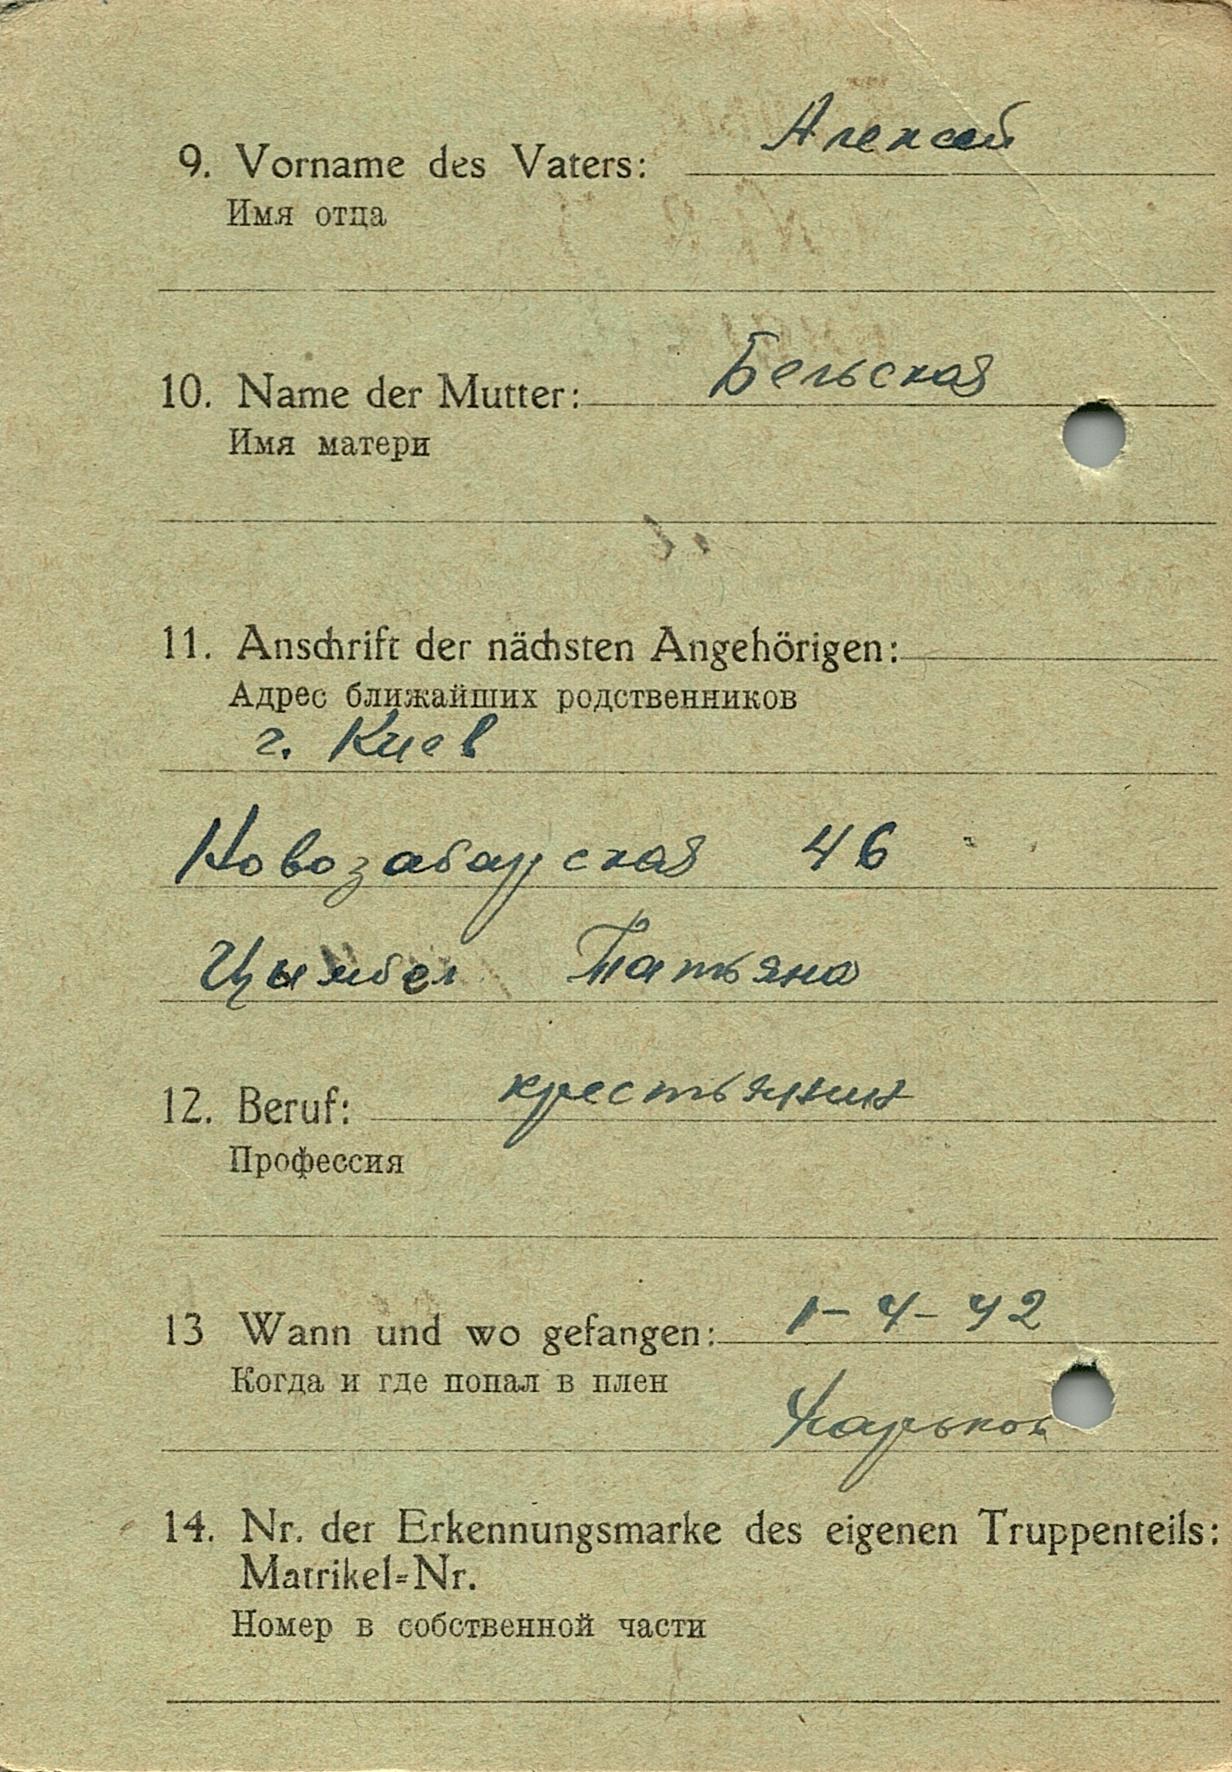 9. Vorname des Vaters: Алексей
Имя отца
10. Name der Mutter: Бельская
Имя матери
11. Anschrift der nächsten Angehörigen:
Адрес ближайших родственников
г. Киев
Новозабарская 46
Цымбел Татьяна
12. Beruf: крестьянин
Профессия
13 Wann und wo gefangen: 1-4-42
Когда и где попал в плен
Харьков
14. Nr. der Erkennungsmarke des eigenen Truppenteils:
Matrikel=Nr.
Номер в собственной части